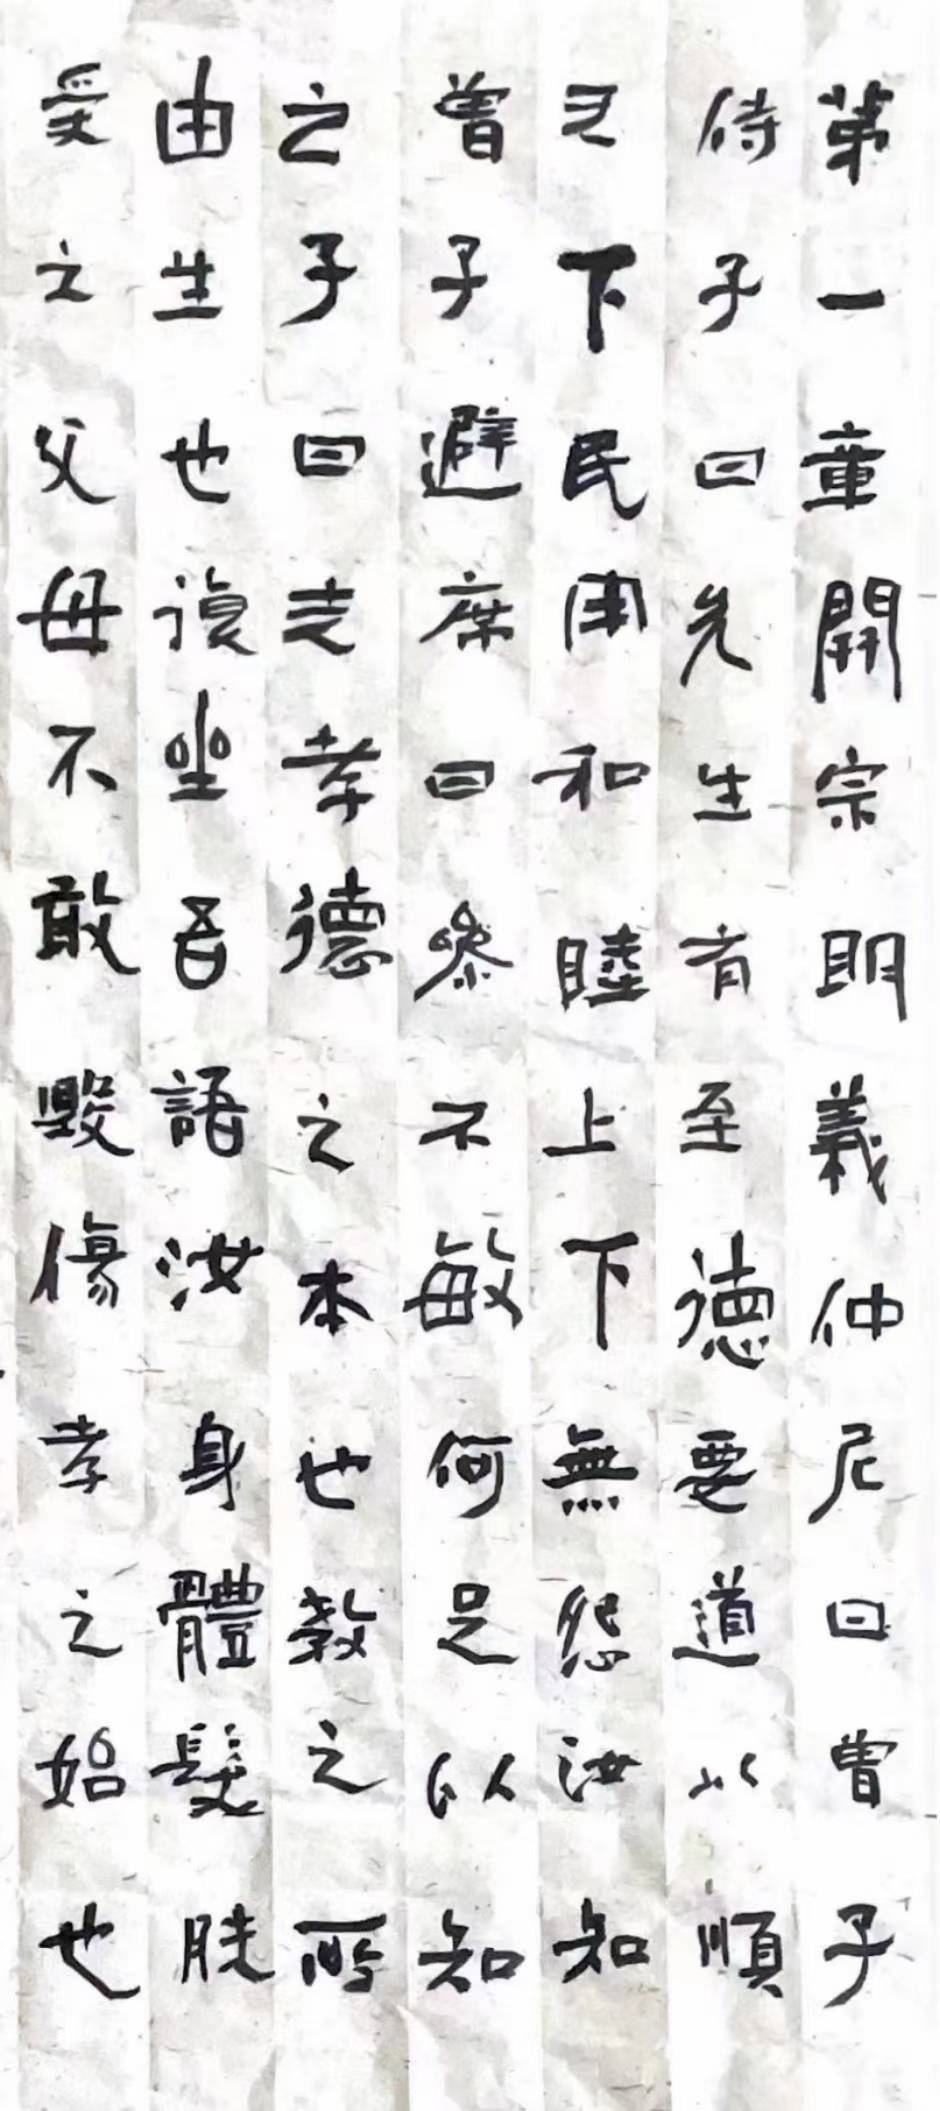 第一章開宗明義仲尼曰曾子
侍子曰先生有至德要道以順
天下民用和睦上下無怨汝知
曾子避席曰參不敏何足以知
之子曰夫孝德之本也教之所
由生也復坐吾語汝身體髮肤
受之父母不敢毀傷孝之始也